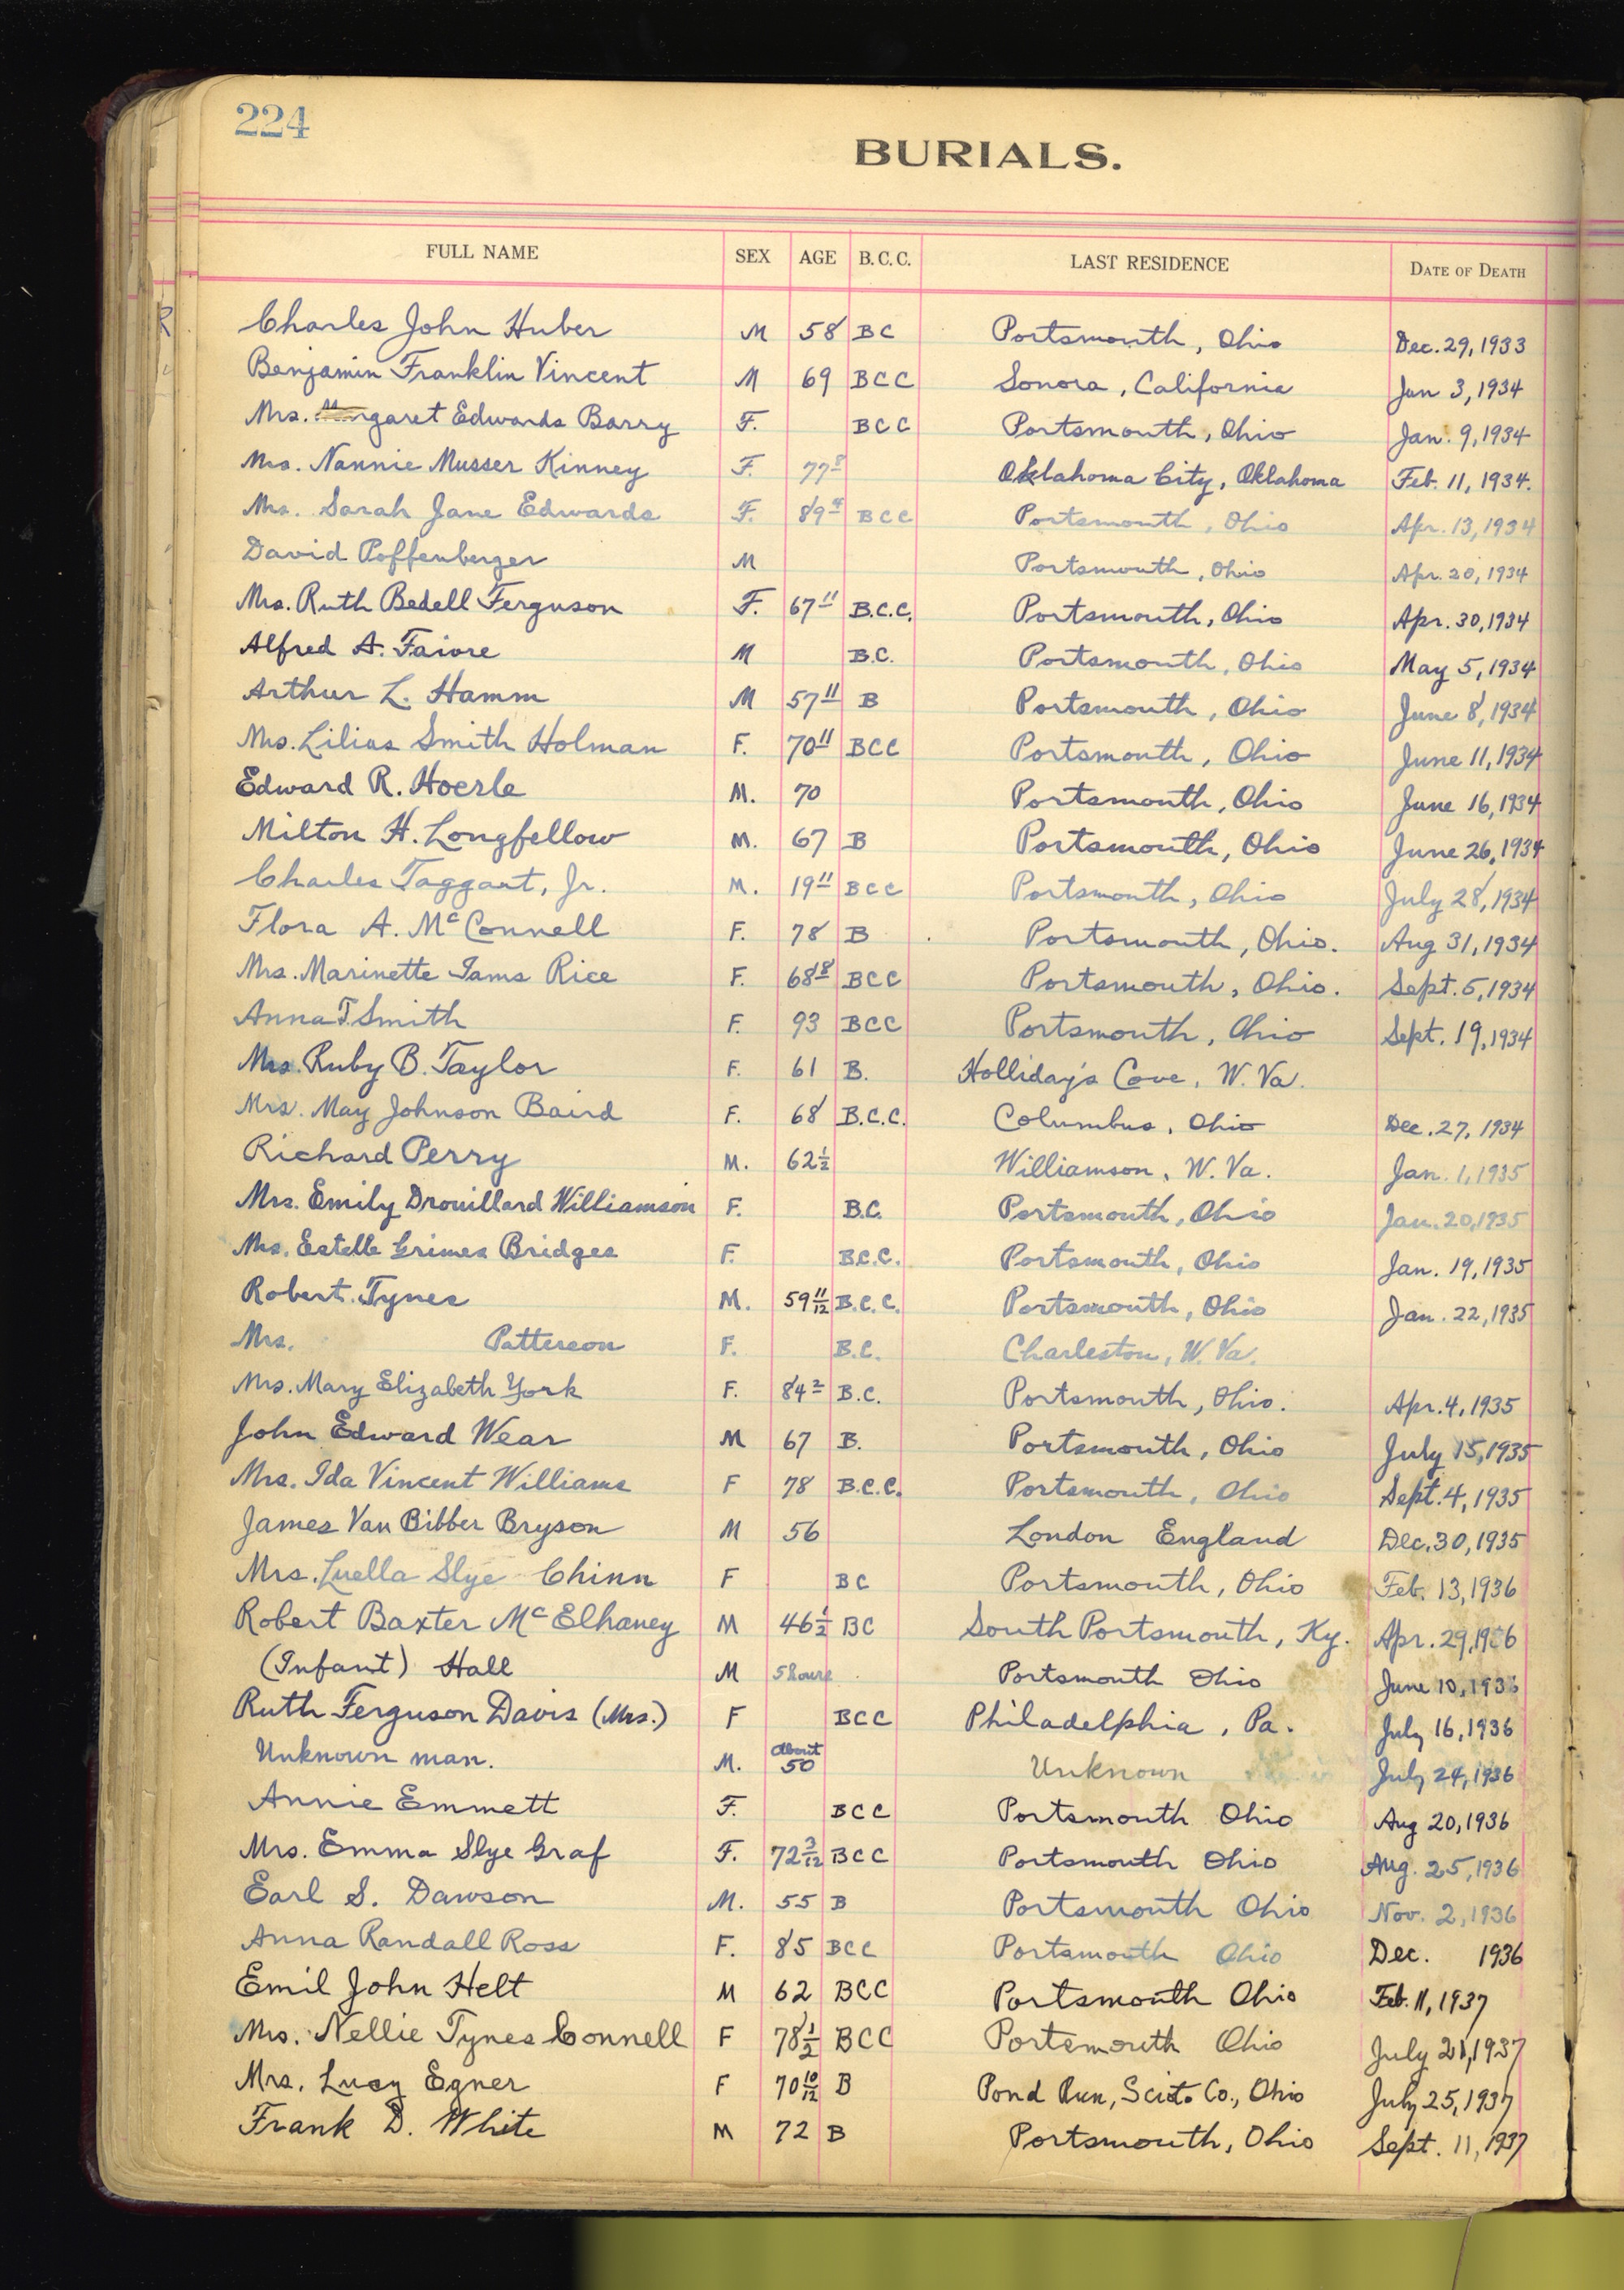 224
BURIALS.
FULL NAME SEX AGE B.C.C. LAST RESIDENCE DATE OF DEATH
Charles John Huber M 58 BC Portsmouth, Ohio Dec. 29, 1933
Benjamin Franklin Vincent M 69 BCC Sonora, California Jan 3, 1934
Mrs. Margaret Edwards Barry F. BCC Portsmouth, Ohio Jan. 9, 1934
Mrs. Nannie Musser Kinney F. 77 8 Oklahoma City, Oklahoma Feb. 11, 1934.
Mrs. Sarah Jane Edwards F. 89 4 BCC Portsmouth, Ohio Apr. 13, 1934
David Poffenberger M Portsmouth, Ohio Apr. 20, 1934
Mrs. Ruth Bedell Ferguson F. 67 11 B.C.C. Portsmouth, Ohio Apr. 30, 1934
Alfred A. Faivre M B.C. Portsmouth, Ohio May 5, 1934
Arthur L. Hamm M 57 11 B Portsmouth, Ohio June 8, 1934
Mrs. Lilias Smith Holman F. 70 11 BCC Portsmouth, Ohio June 11, 1934
Edward R. Hoerle M. 70 Portsmouth, Ohio June 16, 1934
Milton H. Longfellow M. 67 B Portsmouth, Ohio June 26, 1934
Charles Taggart, Jr. M. 19 11 BCC Portsmouth, Ohio July 28, 1934
Flora A. McConnell F. 78 B Portsmouth, Ohio. Aug 31, 1934
Mrs. Marinette Iams Rice F. 68 8 BCC Portsmouth, Ohio. Sept. 5, 1934
Anna T Smith F. 93 BCC Portsmouth, Ohio Sept. 19, 1934
Mrs. Ruby B. Taylor F. 61 B. Holliday's Cove, W. Va.
Mrs. May Johnson Baird F. 68 B.C.C. Columbus, Ohio Dec. 27, 1934
Richard Perry M. 62 1/2 Williamson, W. Va. Jan. 1, 1935
Mrs. Emily Drouillard Williamson F. B.C. Portsmouth, Ohio Jan. 20, 1935
Mrs. Estelle Grimes Bridges F. B.C.C. Portsmouth, Ohio Jan. 19, 1935
Robert Tynes M. 59 11/12 B.C.C. Portsmouth, Ohio Jan. 22, 1935
Mrs. Patterson F. B.C. Charleston, W. Va.
Mrs. Mary Elizabeth York F. 84 2 B.C. Portsmouth, Ohio. Apr. 4, 1935
John Edward Wear M 67 B. Portsmouth, Ohio July 15, 1935
Mrs. Ida Vincent Williams F 78 B.C.C. Portsmouth, Ohio Sept. 4, 1935
James Van Bibber Bryson M 56 London England Dec. 30, 1935
Mrs. Luella Slye Chinn F BC Portsmouth, Ohio Feb. 13, 1936
Robert Baxter McElhaney M 46 1/2 BC South Portsmouth, Ky. Apr. 29, 1936
(Infant) Hall M 5 hours Portsmouth Ohio June 10, 1936
Ruth Ferguson Davis (Mrs.) F BCC Philadelphia, Pa. July 16, 1936
Unknown man. M. About 50 Unknown July 24, 1936
Annie Emmett F. BCC Portsmouth Ohio Aug 20, 1936
Mrs. Emma Slye Graf F. 72 3/12 BCC Portsmouth Ohio Aug. 25, 1936
Earl S. Dawson M. 55 B Portsmouth Ohio Nov. 2, 1936
Anna Randall Ross F. 85 BCC Portsmouth Ohio Dec. 1936
Emil John Helt M 62 BCC Portsmouth Ohio Feb. 11, 1937
Mrs. Nellie Tynes Connell F 78 1/2 BCC Portsmouth Ohio July 21, 1937
Mrs. Lucy Egner F 70 10/12 B Pond Run, Scioto Co., Ohio July 25, 1937
Frank D. White M 72 B Portsmouth, Ohio Sept. 11, 1937